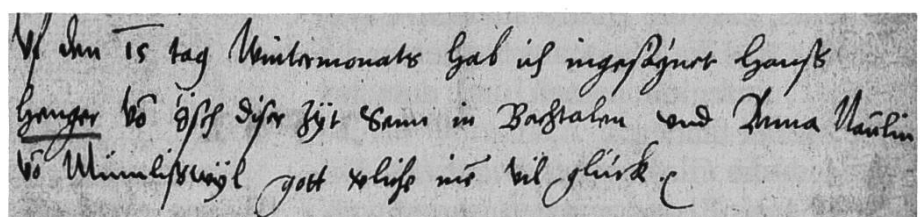 Vf den 15 tag Wintermonats hab ich ingesägnet Hanß
Henger võ Ösch diser Zÿt Senn in Bachtalen vnd Anna Naülin
võ Mümlißwÿl gott verliche inẽ vil glück.